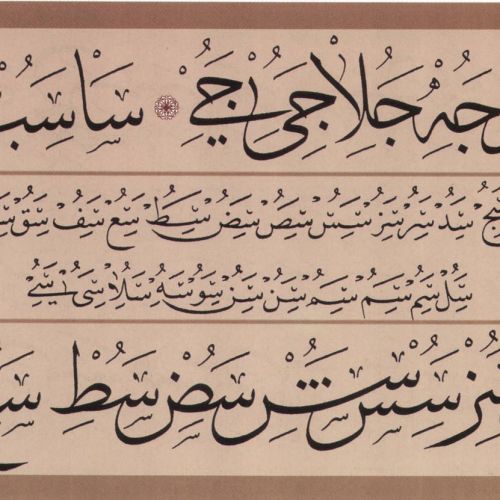 جه جلا جى جى سا سب
سد سر سز سس سص سض سط سع سف سق
سل سم سم سم سن سن سو سه سلا سى سى
سز سس سض سط